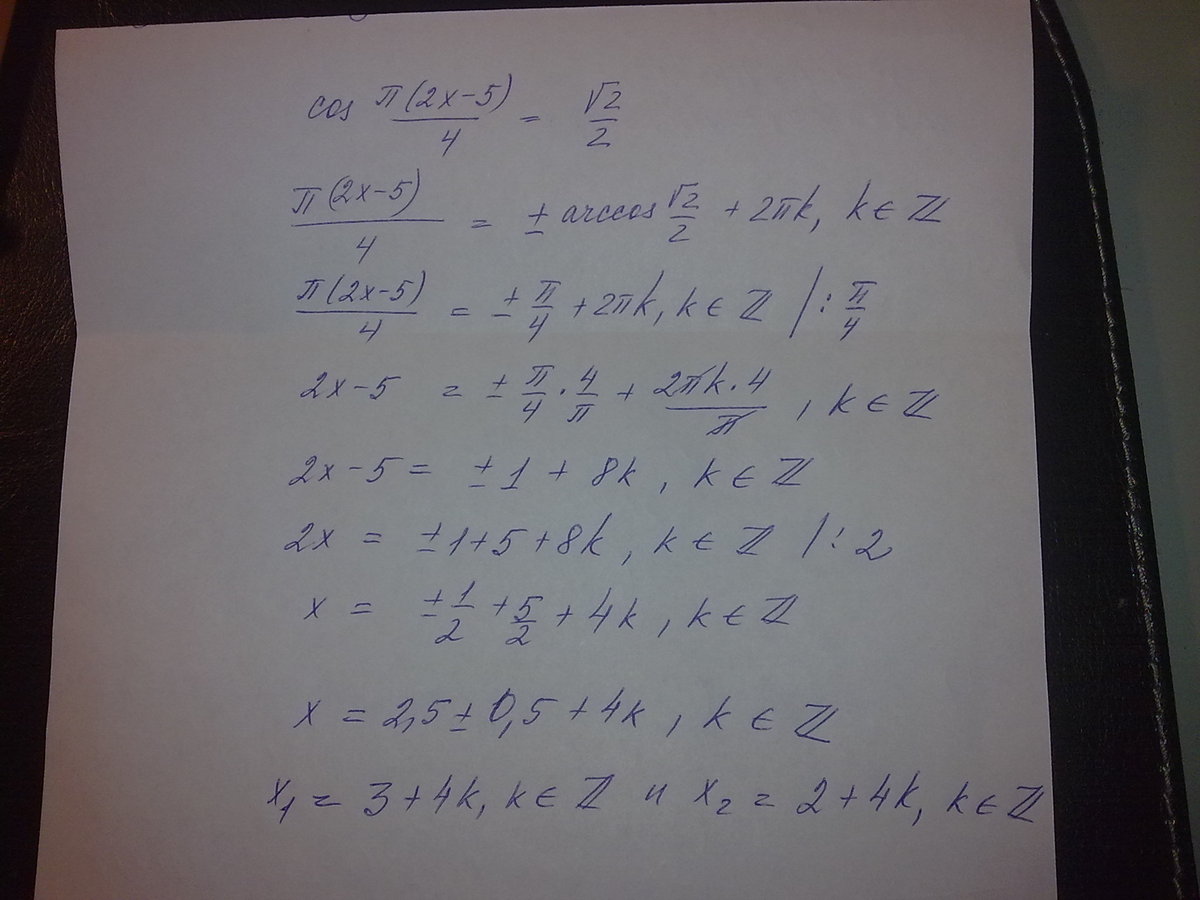 cos π(2x-5)/4 = √2/2
π(2x-5)/4 = ± arccos √2/2 + 2πk, k ∈ ℤ
π(2x-5)/4 = ± π/4 + 2πk, k ∈ ℤ |: π/4
2x-5 = ± π/4 · 4/π + 2πk·4/π, k ∈ ℤ
2x-5 = ±1 + 8k, k ∈ ℤ
2x = ±1+5+8k, k ∈ ℤ |: 2
x = ± 1/2 + 5/2 + 4k, k ∈ ℤ
x = 2,5 ± 0,5 + 4k, k ∈ ℤ
x₁ = 3 + 4k, k ∈ ℤ и x₂ = 2 + 4k, k ∈ ℤ